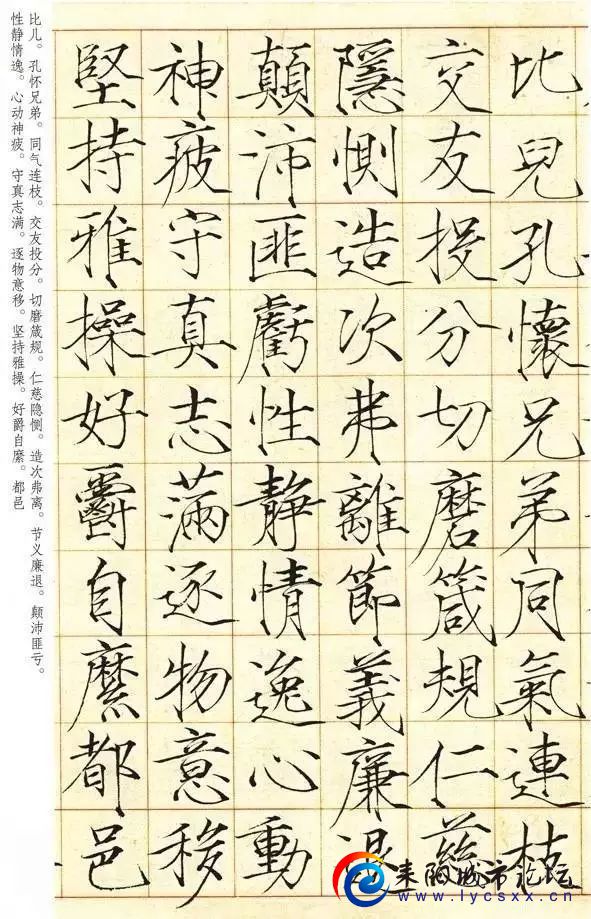 比兒孔懷兄弟同氣連枝
交友投分切磨箴規仁慈
隱惻造次弗離節義廉退
顛沛匪虧性靜情逸心動
神疲守真志滿逐物意移
堅持雅操好爵自縻都邑
比儿。孔怀兄弟。同气连枝。交友投分。切磨箴规。仁慈隐恻。造次弗离。节义廉退。颠沛匪亏。
性静情逸。心动神疲。守真志满。逐物意移。坚持雅操。好爵自縻。都邑
耒阳城市论坛
www.lycsxx.cn